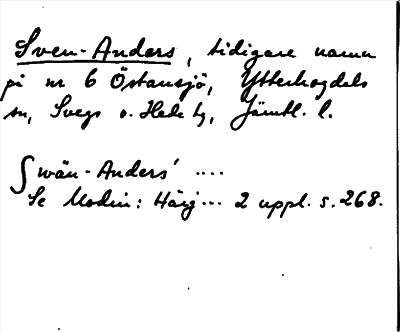 Sven-Anders, tidigare namn
på nr 6 Östansjö, Ytterhogdals
sn, Svegs o. Hede tg, Jämtl. l.
Swän-Anders' ....
Se Modin: Härj... 2 uppl. s. 268.